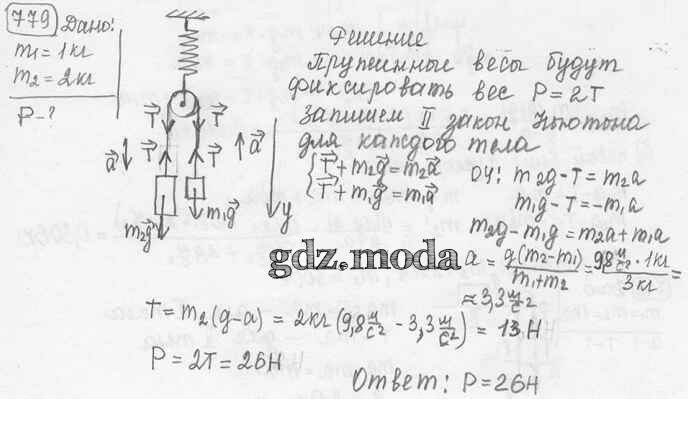 779 Дано:
m₁ = 1кг
m₂ = 2кг
P - ?
T⃗ T⃗
a⃗ T⃗ T⃗ a⃗
m₁g⃗
m₂g⃗
y
Решение
Пружинные весы будут
фиксировать вес P = 2T
Запишем II закон Ньютона
для каждого тела
{ T⃗ + m₂g⃗ = m₂a⃗
T⃗ + m₁g⃗ = m₁a⃗
OY: m₂g - T = m₂a
m₁g - T = -m₁a
m₂g - m₁g = m₂a + m₁a
a = g(m₂-m₁)/(m₁+m₂) = 9,8 м/с² · 1кг / 3кг =
≈ 3,3 м/с²
gdz.moda
T = m₂(g-a) = 2кг(9,8 м/с² - 3,3 м/с²) = 13 Н
P = 2T = 26Н
Ответ: P = 26Н